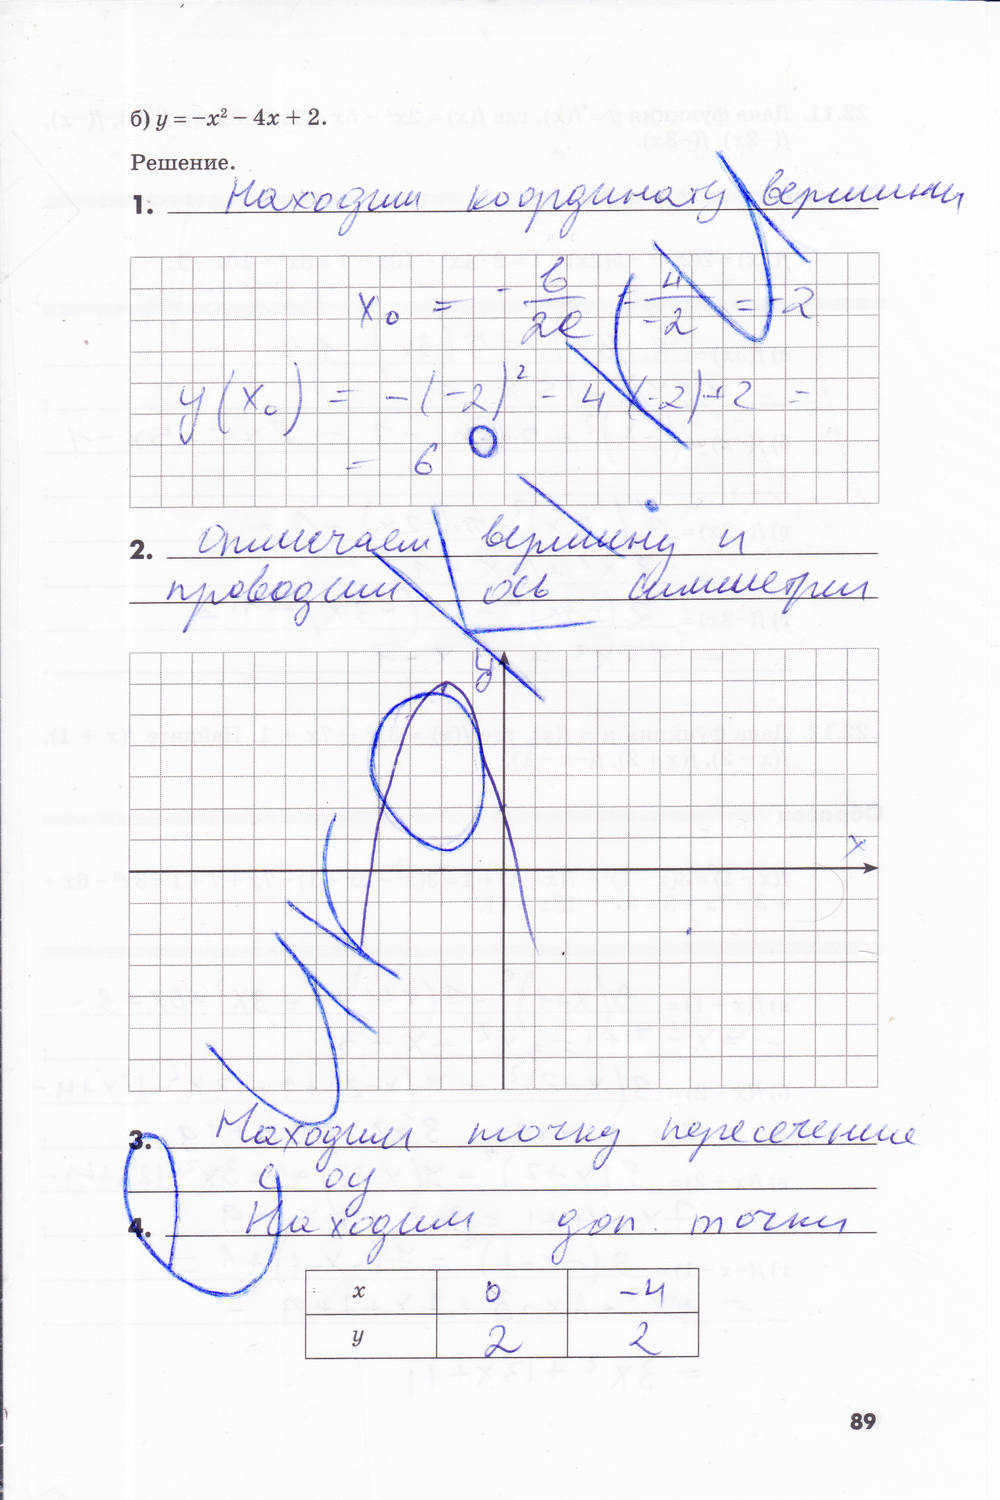 б) y = –x² – 4x + 2.
Решение.
1. Находим координату вершины
x₀ = - b/2a = 4/-2 = -2
y(x₀) = -(-2)² - 4(-2)+2 =
= 6
2. Отмечаем вершину и
проводим ось симметрии
y
x
3. Находим точку пересечение
с oy
4. Находим доп. точки
x 0 -4
y 2 2
89